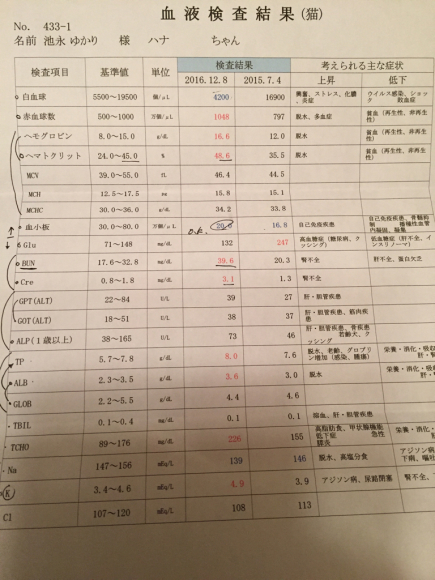 血液検査結果(猫)
No. 433-1
名前 池永 ゆかり 様 ハナ ちゃん
検査項目 基準値 単位 検査結果 考えられる主な症状
2016.12.8 2015.7.4 上昇 低下
白血球 5500～19500 個/μL 4200 16900 興奮、ストレス、化膿、炎症 ウイルス感染、ショック 敗血症
赤血球数 500～1000 万個/μL 1048 797 脱水、多血症 貧血(再生性、非再生性)
ヘモグロビン 8.0～15.0 g/dL 16.6 12.0 脱水 貧血(再生性、非再生性)
ヘマトクリット 24.0～45.0 % 48.6 35.5 脱水 貧血(再生性、非再生性)
MCV 39.0～55.0 fL 46.4 44.5
MCH 12.5～17.5 15.8 15.1
MCHC 30.0～36.0 g/dL 34.2 33.8
血小板 30.0～80.0 万個/μL 16.8 自己免疫疾患
Glu 71～148 mg/dL 132 247 高血糖症(糖尿病、クッシング) 低血糖症(肝不全、インスリノーマ)
BUN 17.6～32.8 mg/dL 39.6 20.3 腎不全 肝不全、蛋白欠乏
Cre 0.8～1.8 mg/dL 3.1 1.3 腎不全
GPT(ALT) 22～84 U/L 39 27 肝・胆管疾患
GOT(ALT) 18～51 U/L 38 37 肝・胆管疾患、筋肉疾患
ALP(1歳以上) 38～165 U/L 73 46 肝・胆管疾患、骨疾患 若齢犬、クッシング
TP 5.7～7.8 g/dL 8.0 7.6 脱水、老齢、グロブリン増加(感染、腫瘍) 栄養・消化・吸収
ALB 2.3～3.5 g/dL 3.6 3.0 脱水 栄養・消化・吸収
GLOB 2.2～5.5 g/dL 4.4 4.6
TBIL 0.1～0.4 mg/dL 0.1 0.1 溶血、肝・胆管疾患
TCHO 89～176 mg/dL 226 155 高脂肪食、甲状腺機能低下症 急性膵炎 栄養・消化・
Na 147～156 mEq/L 139 146 脱水、高塩分食 アジソン病、
K 3.4～4.6 mEq/L 4.9 3.9 アジソン病、尿路閉塞 腎不全、
Cl 107～120 mEq/L 108 113